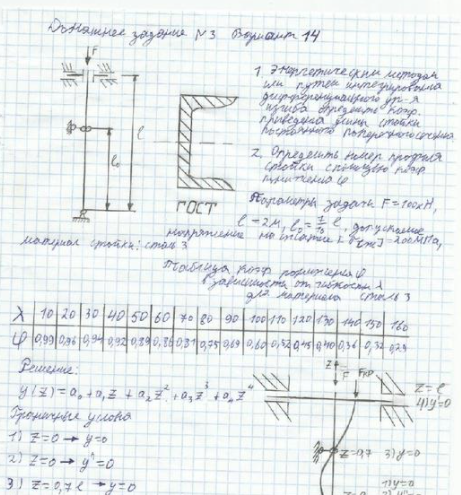 Домашнее задание №3 Вариант 14
F
1. Энергетическим методом
или путем интегрирования
дифференциального ур-я
изгиба определить коэф.
приведения длины стойки
постоянного поперечного сечения
2. Определить номер профиля
стойки с помощью коэф.
понижения φ
l
l₀
ГОСТ
Параметры задачи F=100кН,
l=2м, l₀= l, допускаемое
напряжение на сжатие [σсж]=200МПа,
материал стойки: сталь 3
Таблица коэф понижения φ
в зависимости от гибкости λ
для материала сталь 3
λ 10 20 30 40 50 60 70 80 90 100 110 120 130 140 150 160
φ 0,99 0,96 0,94 0,92 0,89 0,86 0,81 0,75 0,69 0,60 0,52 0,45 0,40 0,36 0,32 0,29
Решение:
y(z)=a₀+a₁z+a₂z²+a₃z³+a₄z⁴
Граничные условия
1) z=0→y=0
2) z=0→y''=0
3) z=0,7l→y=0
z
F Fкр
z=l
4) y=0
z=0,7 3) y=0
1) y=0